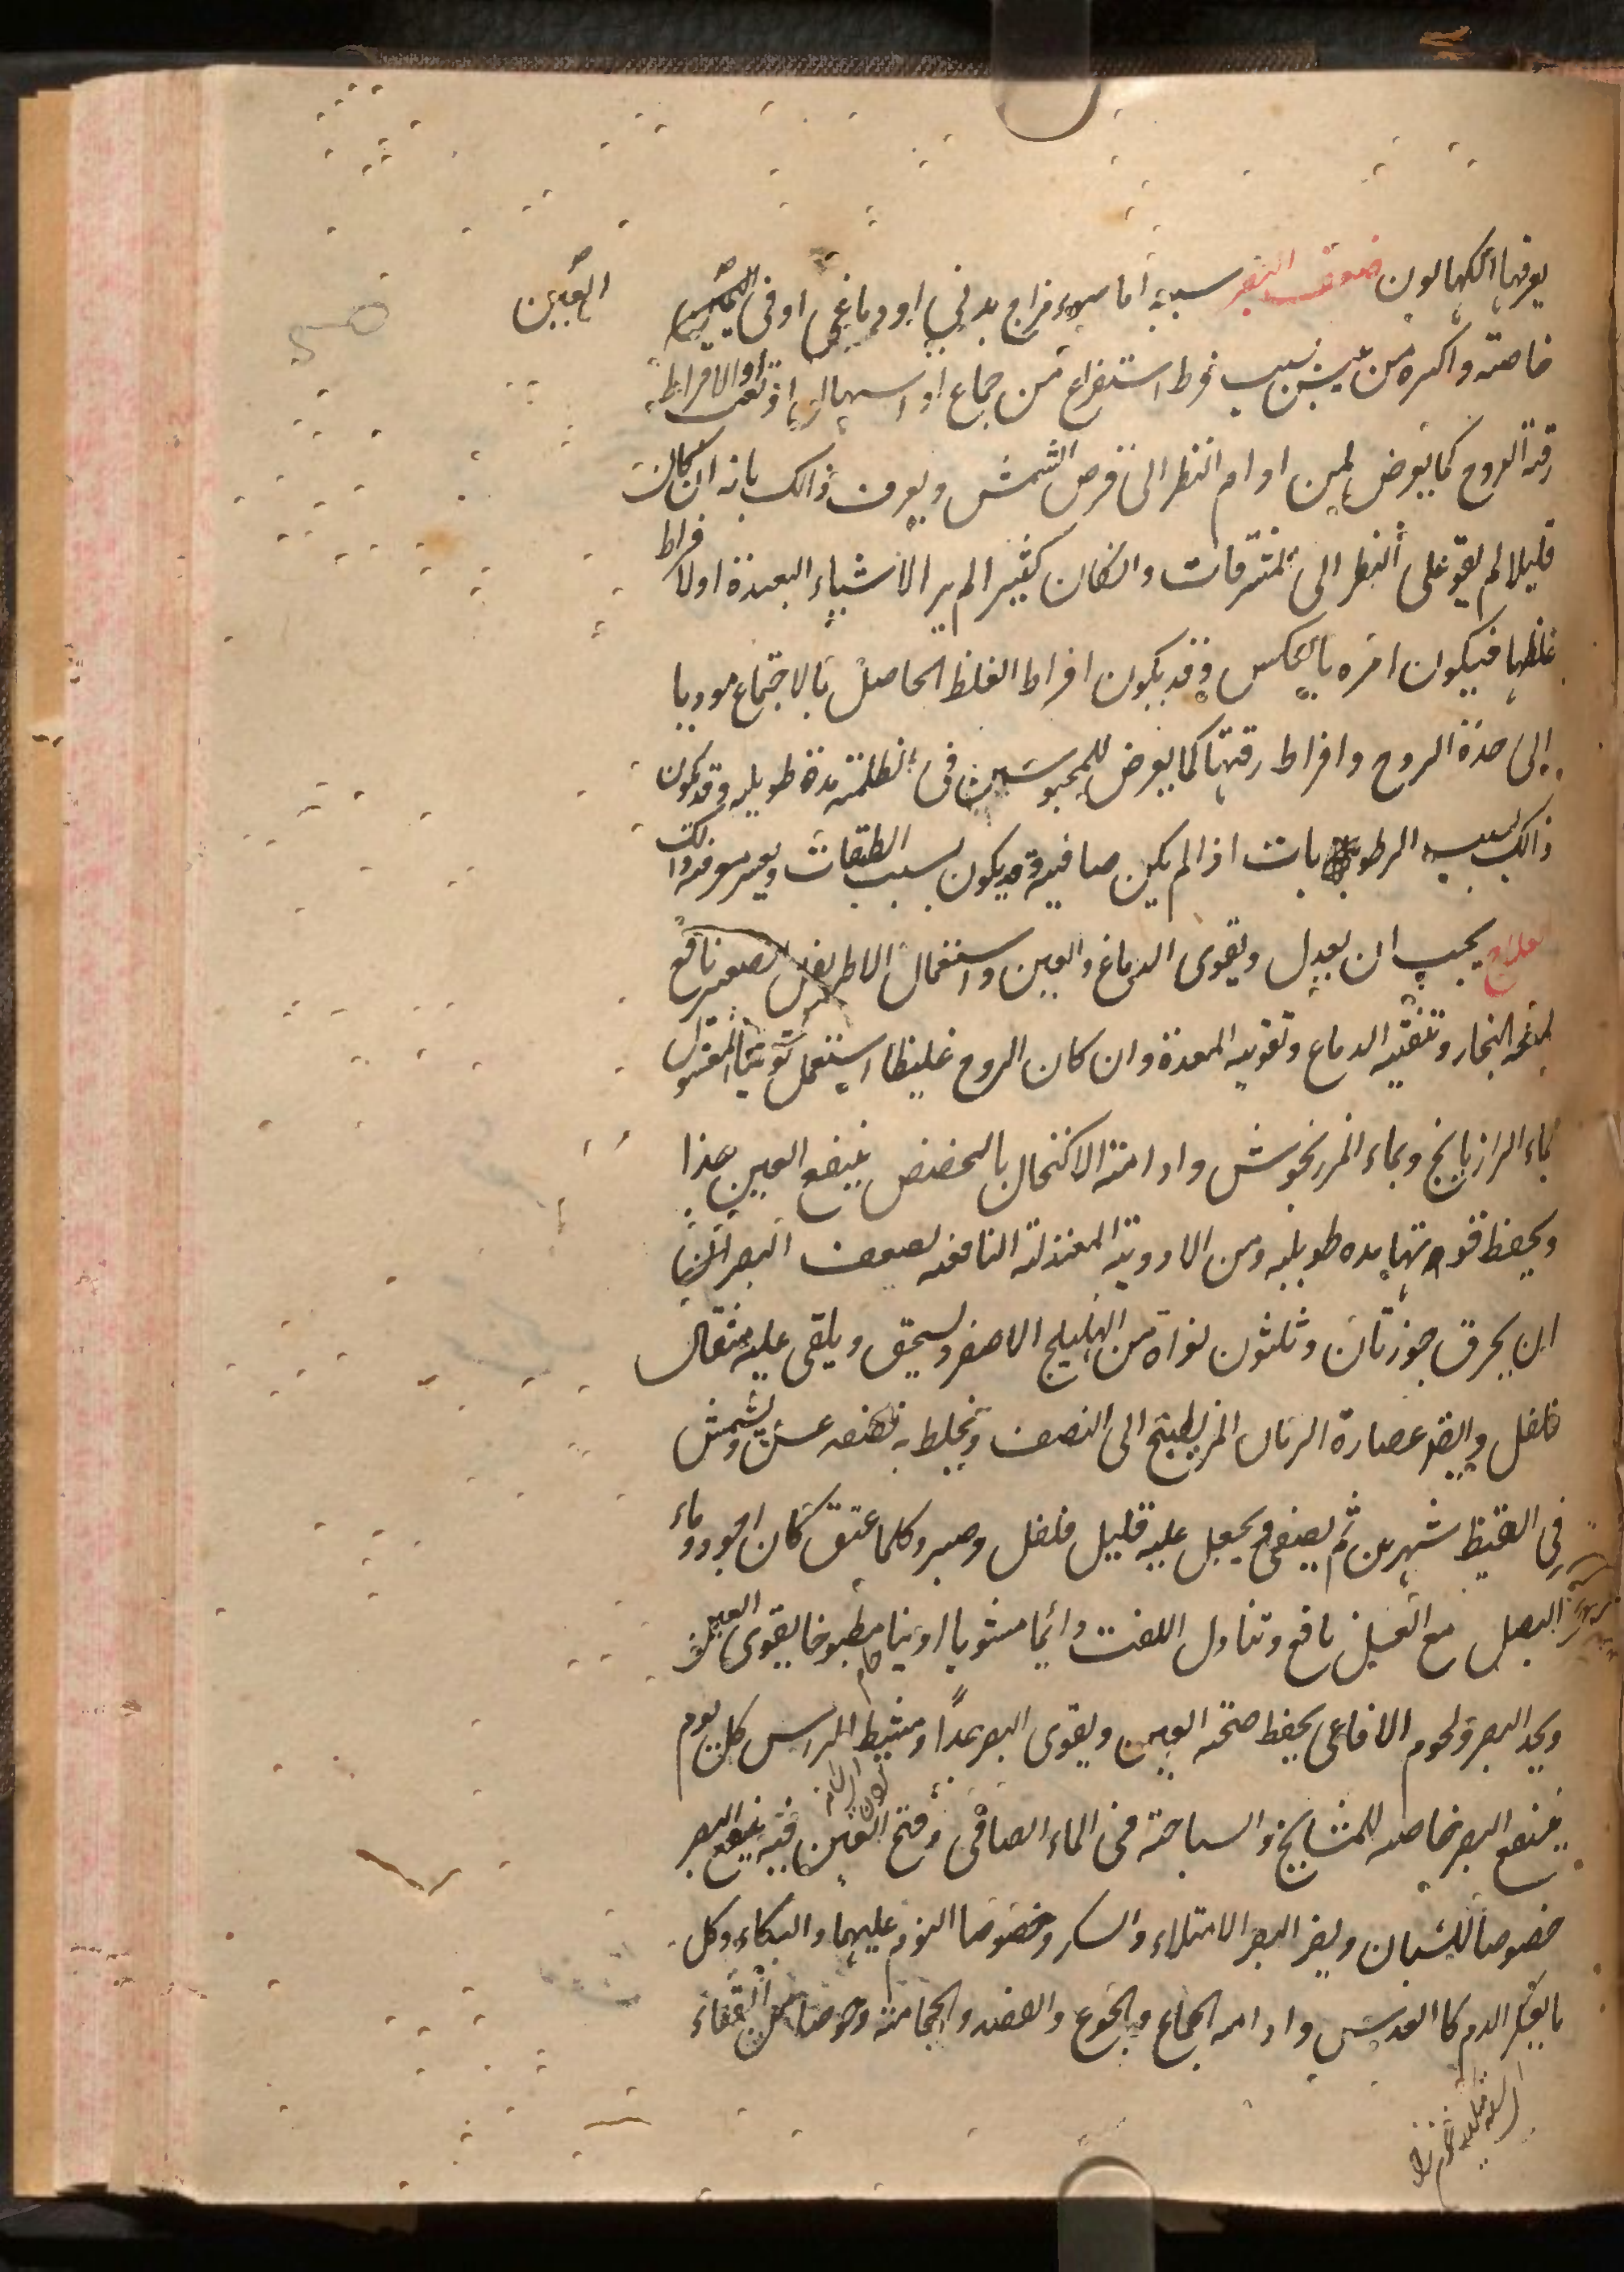 يعرفها الكحالون ضعف البصر سببه اما سوء مزاج بدني او دماغي او في العين
العين
خاصة واكثره من يبس بسبب فرط استفراغ من جماع او اسهال او تعب او لافراط
رقة الروح كما يعرض لمن ادام النظر الى قرص الشمس ويعرف ذالك بانه ان كان
قليلا لم يقو على النظر الى المشرقات وانكان كثيرا لم ير الاشياء البعيدة اولا فراط
غلظها فيكون امره بالعكس وقد يكون افراط الغلظ الحاصل بالاجتماع موديا
الى حدة الروح وافراط رقتها كما يعرض للمحبوسين فى الظلمة مدة طويلة وقد يكون
ذالك بسبب الرطوبات اذا لم يكن صافية وقد يكون بسبب الطبقات ويعسر معرفة ذالك
العلاج يجب ان يعدل ويقوى الدماغ والعين واستعمال الاطريفل الصغير نافع
لمنعه البخار وتنقيه الدماغ وتقويه المعدة وان كان الروح غليظا استعمل توتيا المغسول
بماء الرازيانج وبماء المرزنجوش وادامته الاكتحال بالحضض ينفع العين جدا
ويحفظ قوتها مده طويله ومن الادوية المعتدلة النافعه لضعف البصر
ان يحرق جوزتان وثلثون نواة من الهليلج الاصفر ويسحق ويلقى عليه مثقال
فلفل وايضا عصارة الرمان المز يطبخ الى النصف ويخلط به نصفه عسل ويشمش
في القيظ شهرين ثم يصفى ويجعل عليه قليل فلفل وصبر وكلما عتق كان اجود وماء
البصل مع العسل نافع وتناول اللفت دائما مشويا او نيا مطبوخا يقوى العين
ويحد البصر ولحوم الافاعى يحفظ صحة العين ويقوى البصر جدا ومشيط الراس كل يوم
ينفع البصر خاصه للمشايخ والسباحة فى الماء الصافى وفتح العين فيه ينفع البصر
خصوصا للشبان ويضر البصر الامتلاء والسكر وخصوصا النوم عليهما والبكاء وكل
ما يعكر الدم كا العدس وادامه الجماع والجوع والفصد والحجامة وخوصا من القفاء